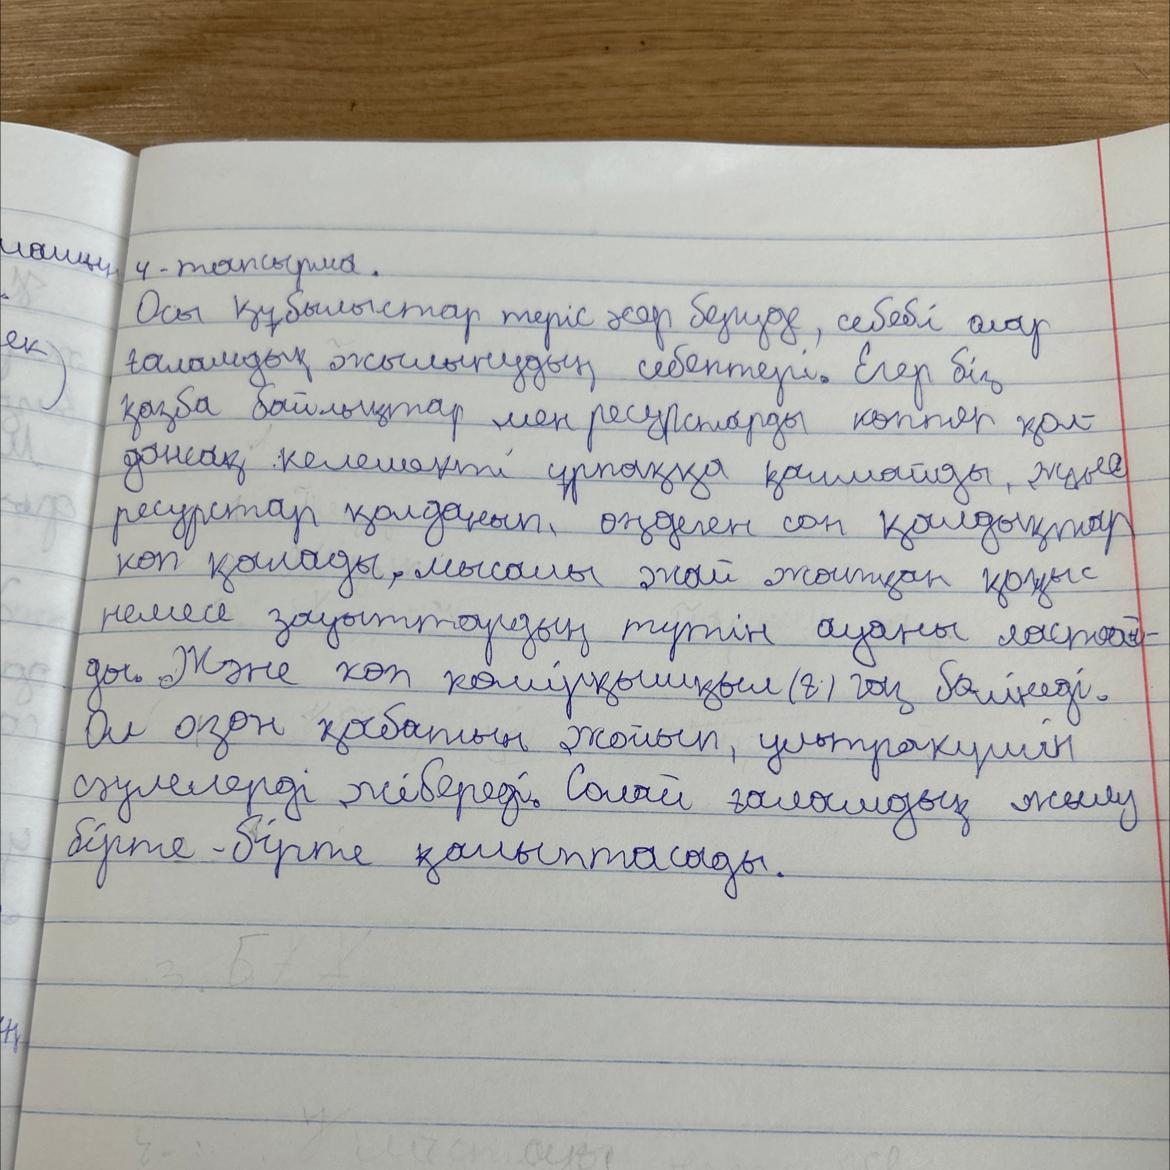 4-тапсырма.
Осы құбылыстар теріс әсер береді, себебі олар
ғаламдық жылынудың себептері. Егер біз
қазба байлықтар мен ресурстарды көптеп қол-
дансақ келешекті ұрпаққа қалмайды, және
ресурстар қолданып, өңделген сон қалдықтар
көп қалады, мысалы жай жатқан қоқыс
немесе зауыттардың түтін ауаны ластай-
ды. Және көп көмірқышқыл (г.) газ бөлінеді.
Ол озон қабатын жойып, ультракүлгін
сәулелерді жібереді. Солай ғаламдық жылу
бірте-бірте қалыптасады.
ек)